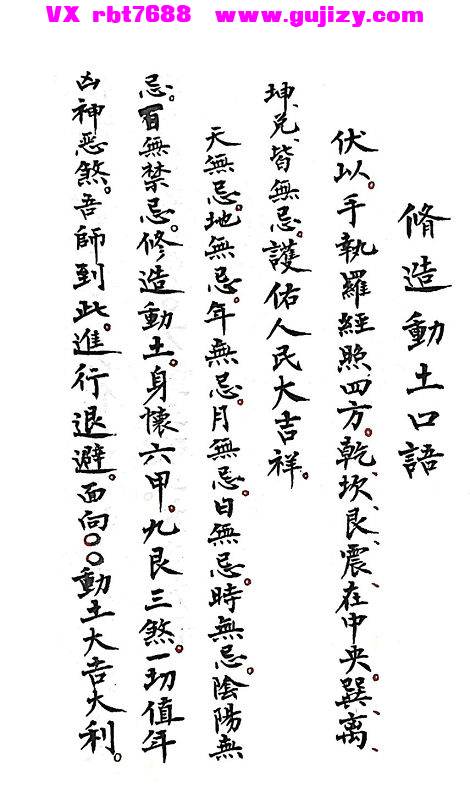 VX rbt7688 www.gujizy.com
脩造動土口語
伏以。手執羅經照四方。乾、坎、艮、震、在中央。巽、离、
坤、兑、皆無忌。護佑人民大吉祥。
天無忌。地無忌。年無忌。月無忌。日無忌。時無忌。陰陽無
忌。百無禁忌。修造動土。身懷六甲。九艮三煞。一切值年
凶神恶煞。吾師到此。進行退避。面向〇〇動土大吉大利。